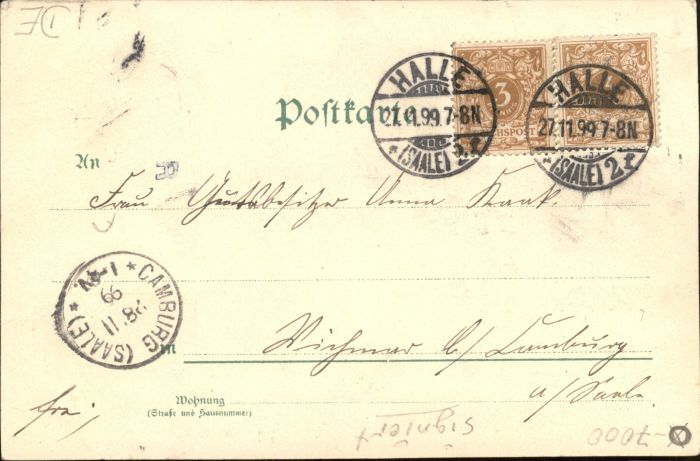 DE
Postkarte
3
REICHSPOST
HALLE
27.11.99.7-8N
* (SAALE) 2 f
HALLE
27.11.99.7-8N
* (SAALE) 2 f
An
Frau Gutsbesitzer Anna
* CAMBURG (SAALE) *
28.11
99
in
Wichmar b/ Camburg
a/ Saale
Wohnung
(Straße und Hausnummer)
frei
signiert
-7000